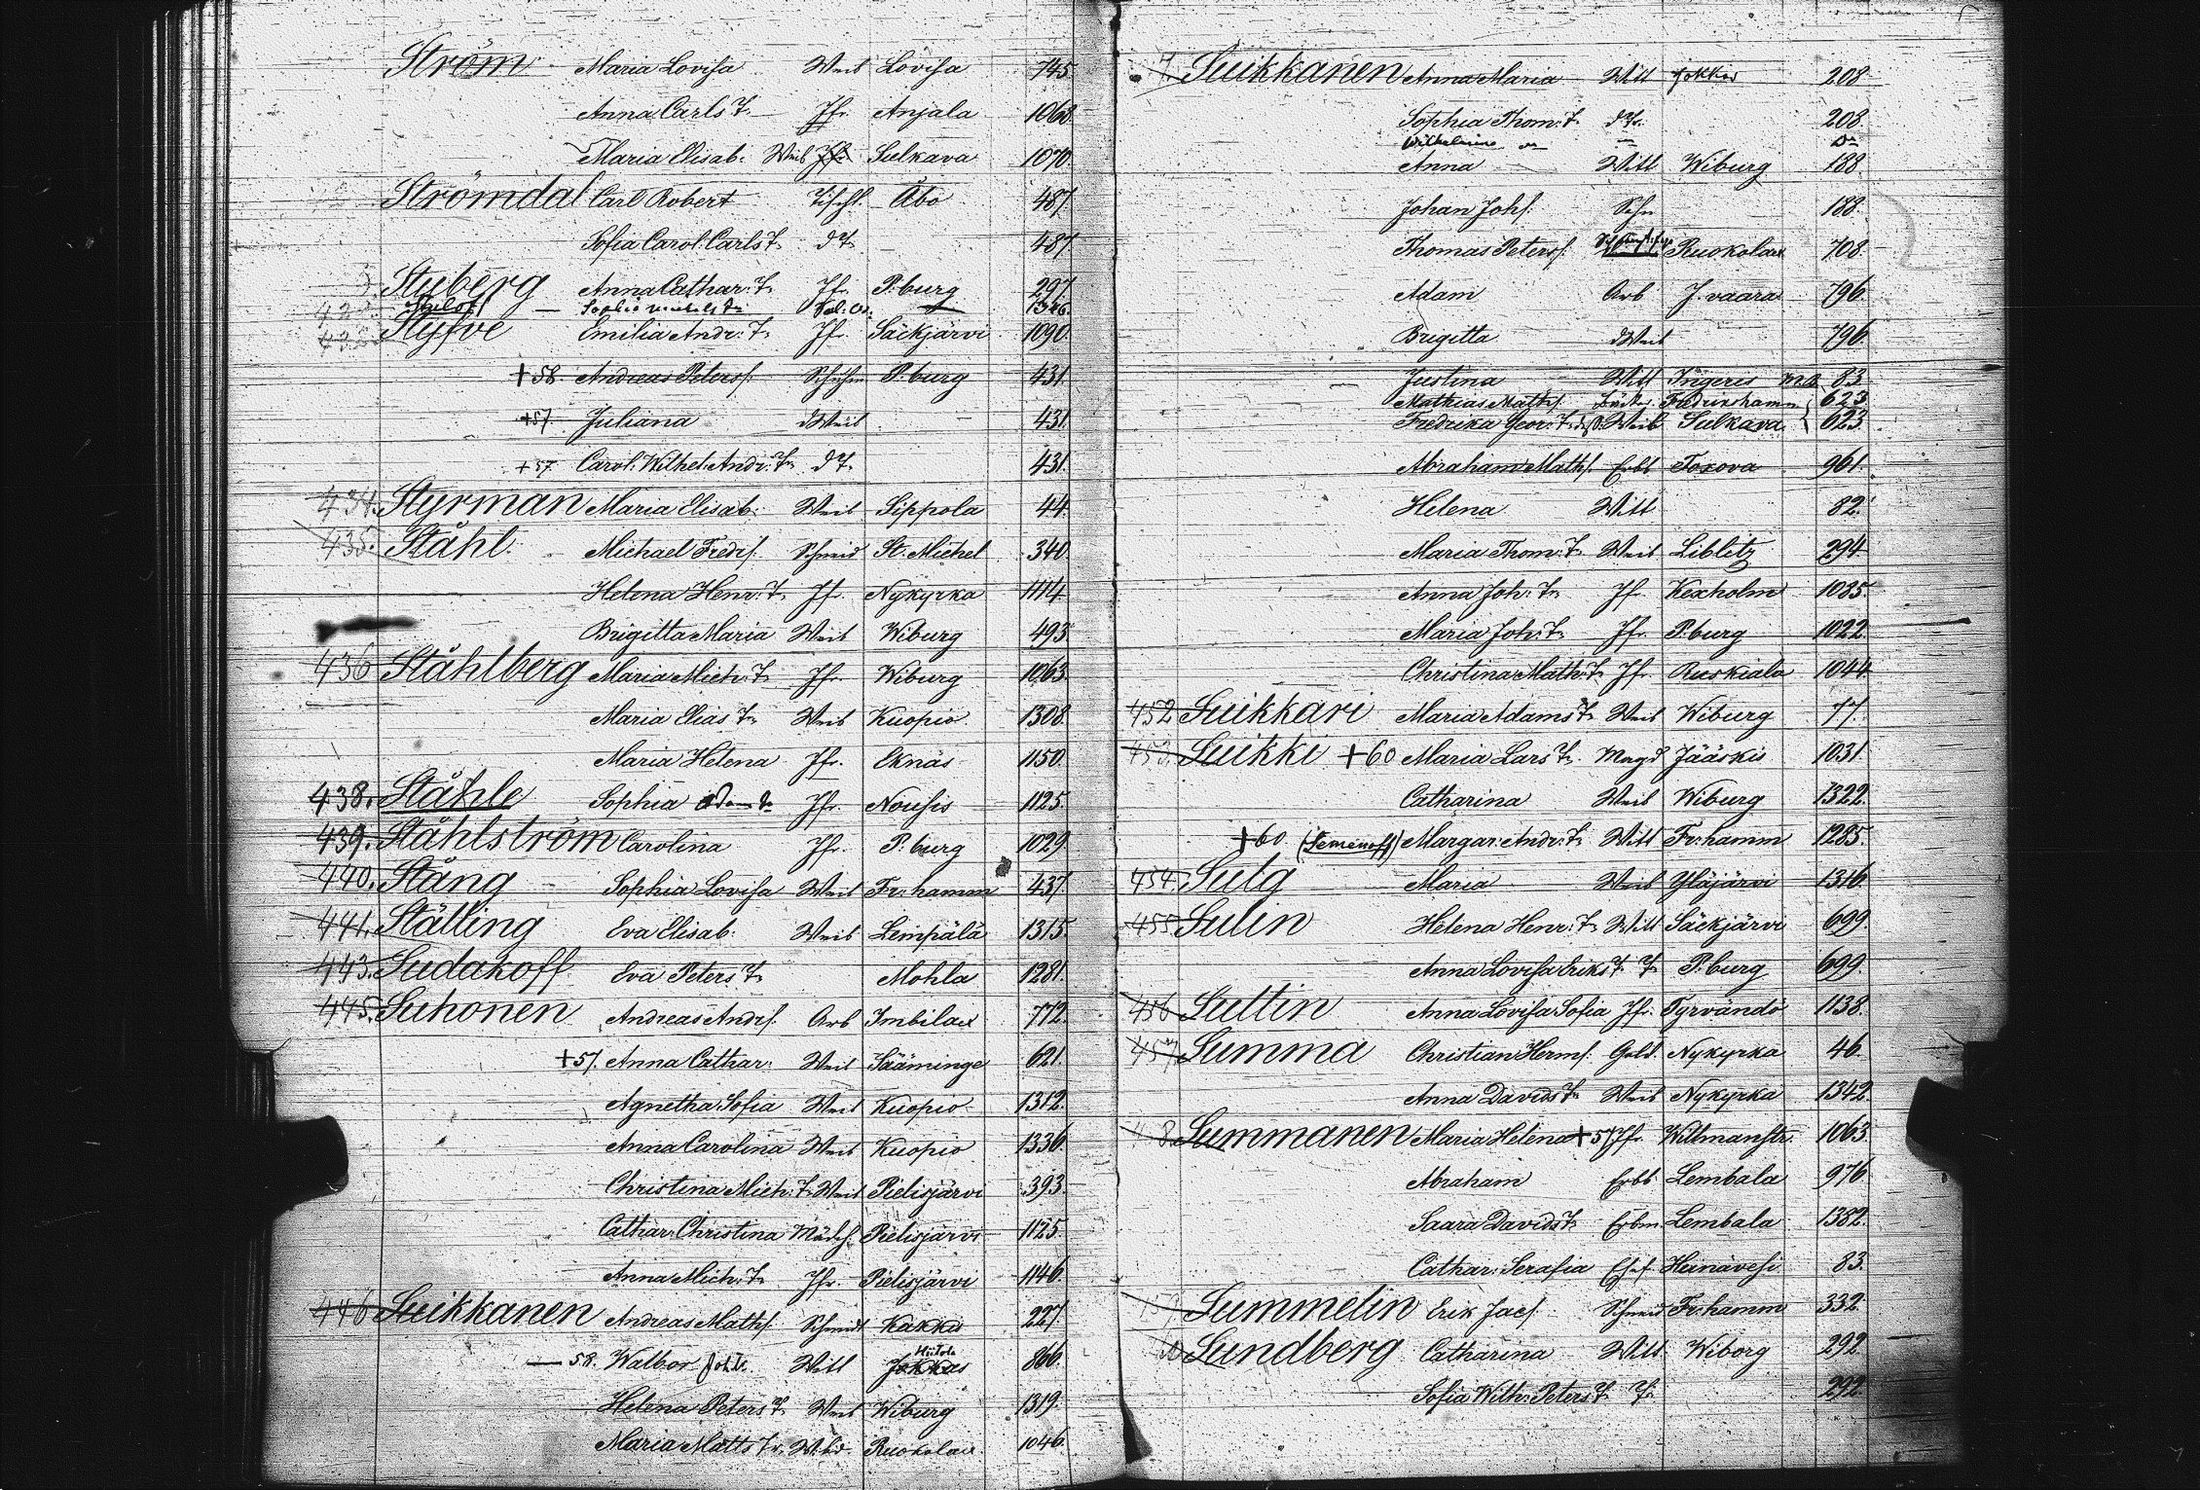 Ström Maria Lovisa Weib Lovisa 745
Anna Carls T. Jfr. Anjala 1068.
Maria Elisab. Weib Jfr. Sulkava 1070.
Strömdal Carl Robert Tischl. Åbo 487.
Sofia Carol. Carls T. d T. 487.
Stuberg Anna Cathar. T. Jfr. P.burg 297
Sophia 1346.
Styfve Emilia Andr. T. Jfr. Säckjärvi 1090.
+58. Andreas Peters f. Schuhm P.burg 431.
+57. Juliana d Weib 431.
+57. Carol. Wilhel. Andr. T. d T. 431.
434. Styrman Maria Elisab. Weib Sippola 44.
435. Ståhl. Michael Fredr f. Schmid St. Michel 340.
Helena Henr. T. Jfr. Nykyrka 1114.
Brigitta Maria Weib Wiburg 493.
436 Ståhlberg Maria Mich. T. Jfr. Wiburg 1063.
Maria Elias T. Weib Kuopio 1308.
Maria Helena Jfr. Eknäs 1150.
438. Ståhle Sophia Adams T. Jfr. Nousis 1125.
439. Ståhlström Carolina Jfr. P.burg 1029.
440. Stång Sophia Lovisa Weib Fr.hamm 437.
441. Ställing Eva Elisab. Weib Lempälä 1315.
443. Sudakoff Eva Peters T. Mohla 1281.
445. Suhonen Andreas Andr f. Arb Imbilax 772.
+57. Anna Cathar. Weib Sääminge 621.
Agnetha Sofia Weib Kuopio 1312.
Anna Carolina Weib Kuopio 1336.
Christina Mich. T. Weib Pielisjärvi 393.
Cathar. Christina Mädch. Pielisjärvi 1125.
Anna Mich. T. Jfr. Pielisjärvi 1146.
446 Suikkanen Andreas Math f. Schmidt Kakkis 227.
Hiitola
— 58. Walbor Joh T. Witt Jokkas 866.
Helena Peters T. Weib Wiburg 1319.
Maria Matts T. Wbr. Ruokolax 1046.
7. Suikkanen Anna Maria Witt Jokkas 208
Sophia Thom. T. d T. 208.
Wilhelmine Do
Anna Witt Wiburg 188.
Johan Joh f. Sohn 188.
Thomas Peters f. Ruokolax 708.
Adam Arb J. vaara 796.
Brigitta d Weib 796.
Justina Witt Ingeris 83.
Mathias Math f. Fredrikshamn 623.
Fredrika Geor. T. Weib Sulkava 623.
Abraham Math f. Erbl Toxova 961.
Helena Witt 82.
Maria Thom. T. Weib Liblitz 294
Anna Joh. T. Jfr. Kexholm 1085.
Maria Joh. T. Jfr. P.burg 1022.
Christina Math. T. Jfr. Ruskiala 1044
452 Suikkari Maria Adams T. Weib Wiburg 77.
453. Suikki +60 Maria Lars T. Magd Jääskis 1031.
Catharina Weib Wiburg 1322.
+60 (Semenoff) Margar. Andr. T. Witt Fr.hamm 1285.
454. Sulg Maria Weib Yläjärvi 1316.
455. Sulin Helena Henr. T. Witt Säckjärvi 699.
Anna Lovisa Eriks T. T. P.burg 699.
456 Sultin Anna Lovisa Sofia Jfr. Tyrvändö 1138.
457 Summa Christian Herm f. Gold. Nykyrka 46.
Anna Davids T. Weib Nykyrka 1342.
8. Summanen Maria Helena +57 Jfr. Willmanstr. 1063.
Abraham Erbl Lembala 976
Saara Davids T. Erbm Lembala 1382.
Cathar. Serafia Ehef. Heinävesi 83.
Summelin Erik Jac f. Schmid Fr.hamm 332.
Sundberg Catharina Witt Wiborg 292
Sofia Wilh. Peters T. T. 292